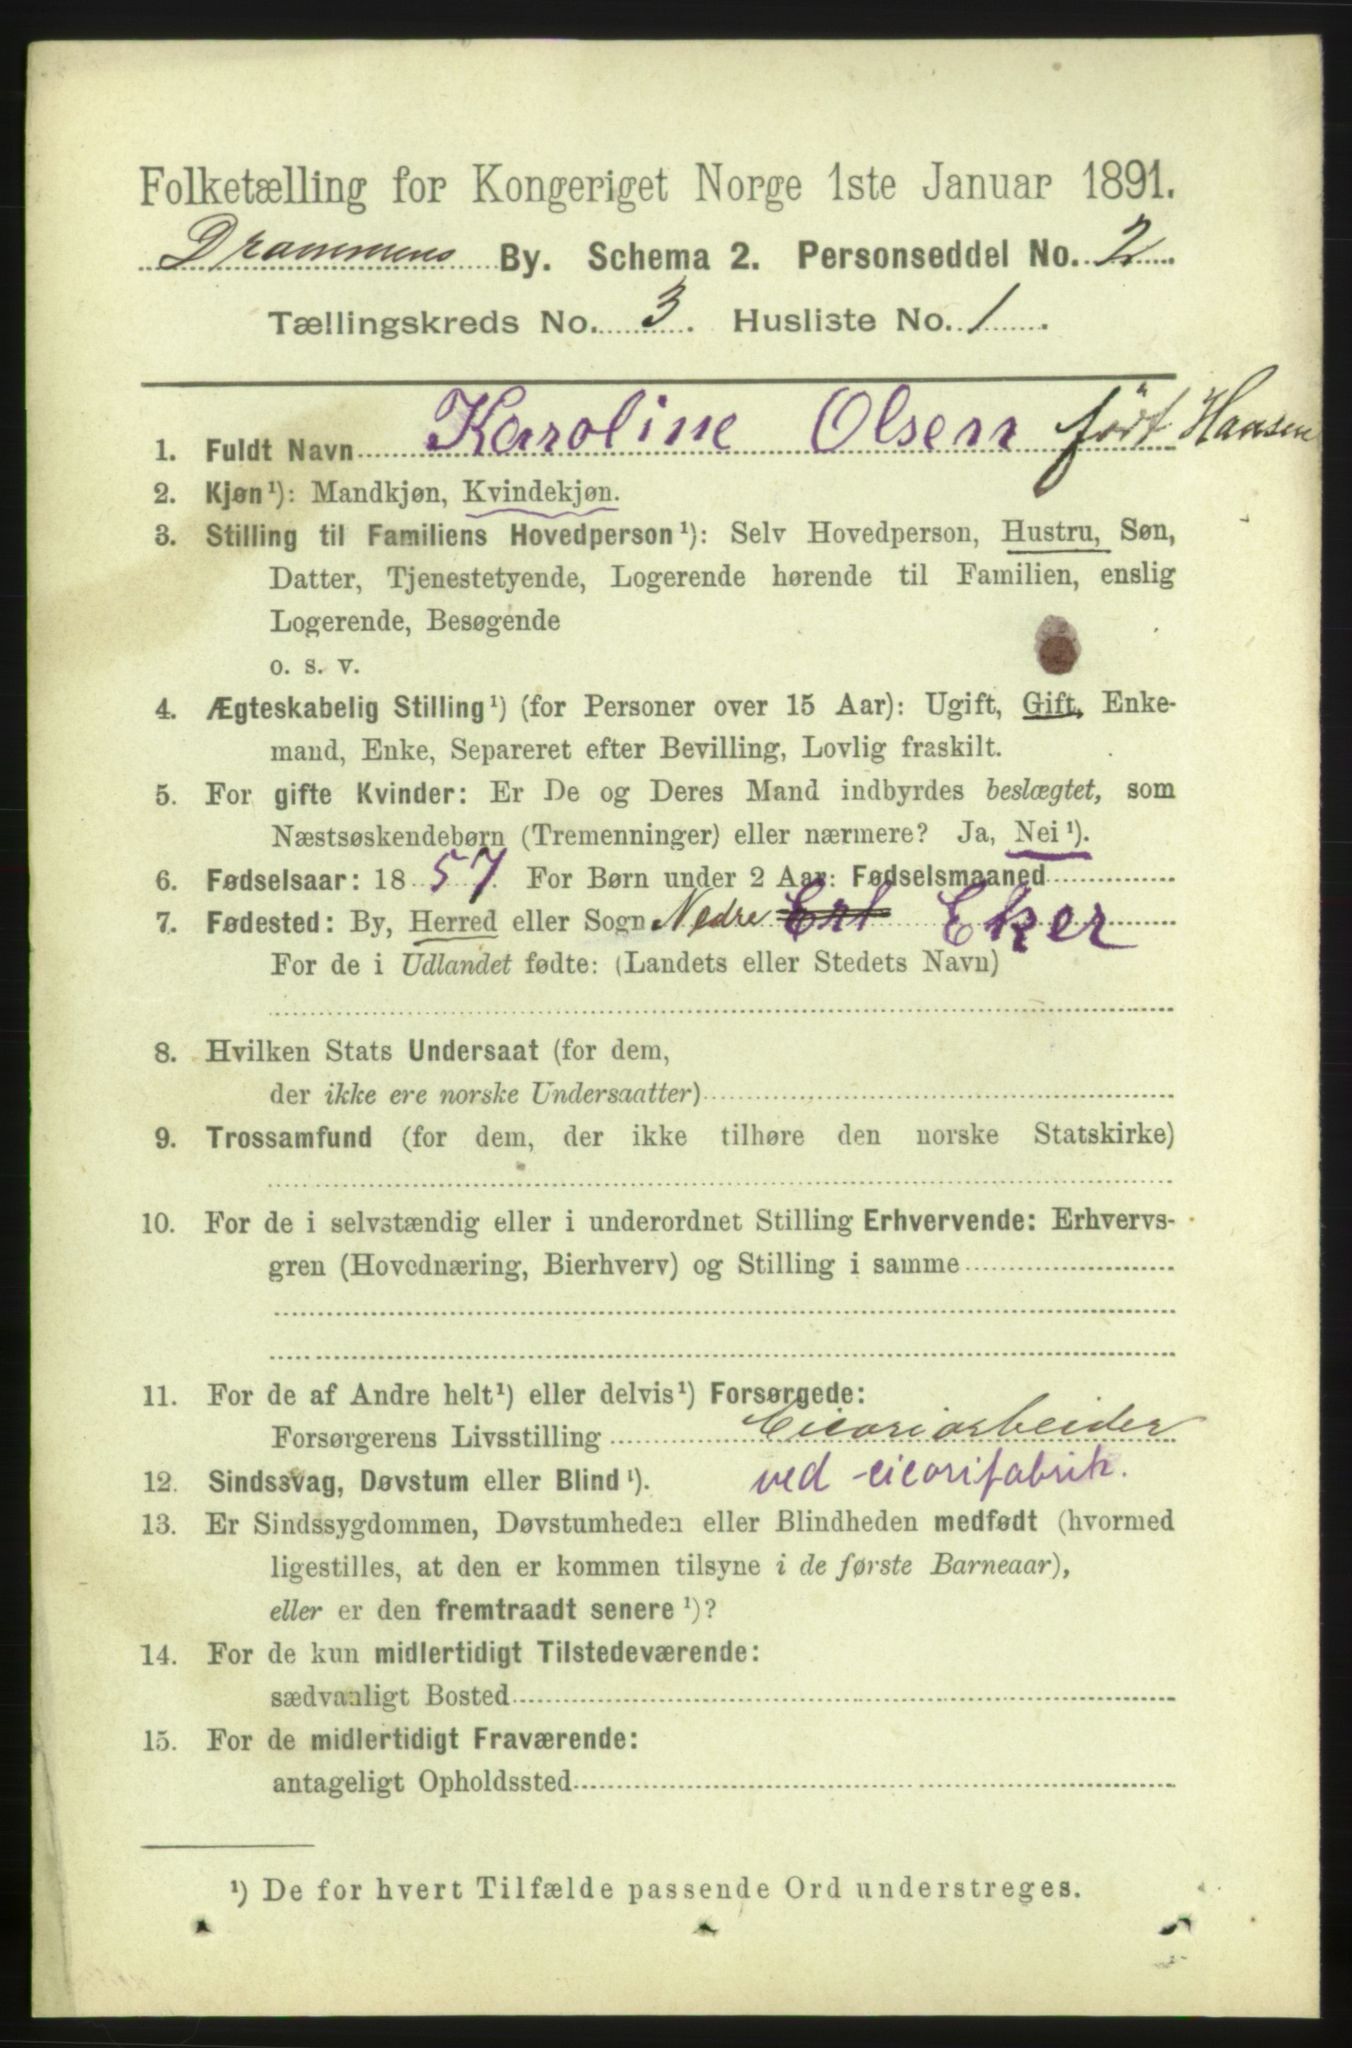 Folketælling for Kongeriget Norge 1ste Januar 1891.
Drammens By. Schema 2. Personseddel No. 2
Tællingskreds No. 3. Husliste No. 1.
1. Fuldt Navn Karoline Olsen født Hansen
2. Kjøn¹): Mandkjøn, Kvindekjøn.
3. Stilling til Familiens Hovedperson¹): Selv Hovedperson, Hustru, Søn,
Datter, Tjenestetyende, Logerende hørende til Familien, enslig
Logerende, Besøgende
o. s. v.
4. Ægteskabelig Stilling¹) (for Personer over 15 Aar): Ugift, Gift, Enke-
mand, Enke, Separeret efter Bevilling, Lovlig fraskilt.
5. For gifte Kvinder: Er De og Deres Mand indbyrdes beslægtet, som
Næstsøskendebørn (Tremenninger) eller nærmere? Ja, Nei¹).
6. Fødselsaar: 1857. For Børn under 2 Aar: Fødselsmaaned
7. Fødested: By, Herred eller Sogn Nedre Eker
For de i Udlandet fødte: (Landets eller Stedets Navn)
8. Hvilken Stats Undersaat (for dem,
der ikke ere norske Undersaatter)
9. Trossamfund (for dem, der ikke tilhøre den norske Statskirke)
10. For de i selvstændig eller i underordnet Stilling Erhvervende: Erhvervs-
gren (Hovednæring, Bierhverv) og Stilling i samme
11. For de af Andre helt¹) eller delvis¹) Forsørgede:
Forsørgerens Livsstilling Cicoriarbeider
12. Sindssvag, Døvstum eller Blind¹). ved cicorifabrik.
13. Er Sindssygdommen, Døvstumheden eller Blindheden medfødt (hvormed
ligestilles, at den er kommen tilsyne i de første Barneaar),
eller er den fremtraadt senere¹)?
14. For de kun midlertidigt Tilstedeværende:
sædvanligt Bosted
15. For de midlertidigt Fraværende:
antageligt Opholdssted
¹) De for hvert Tilfælde passende Ord understreges.